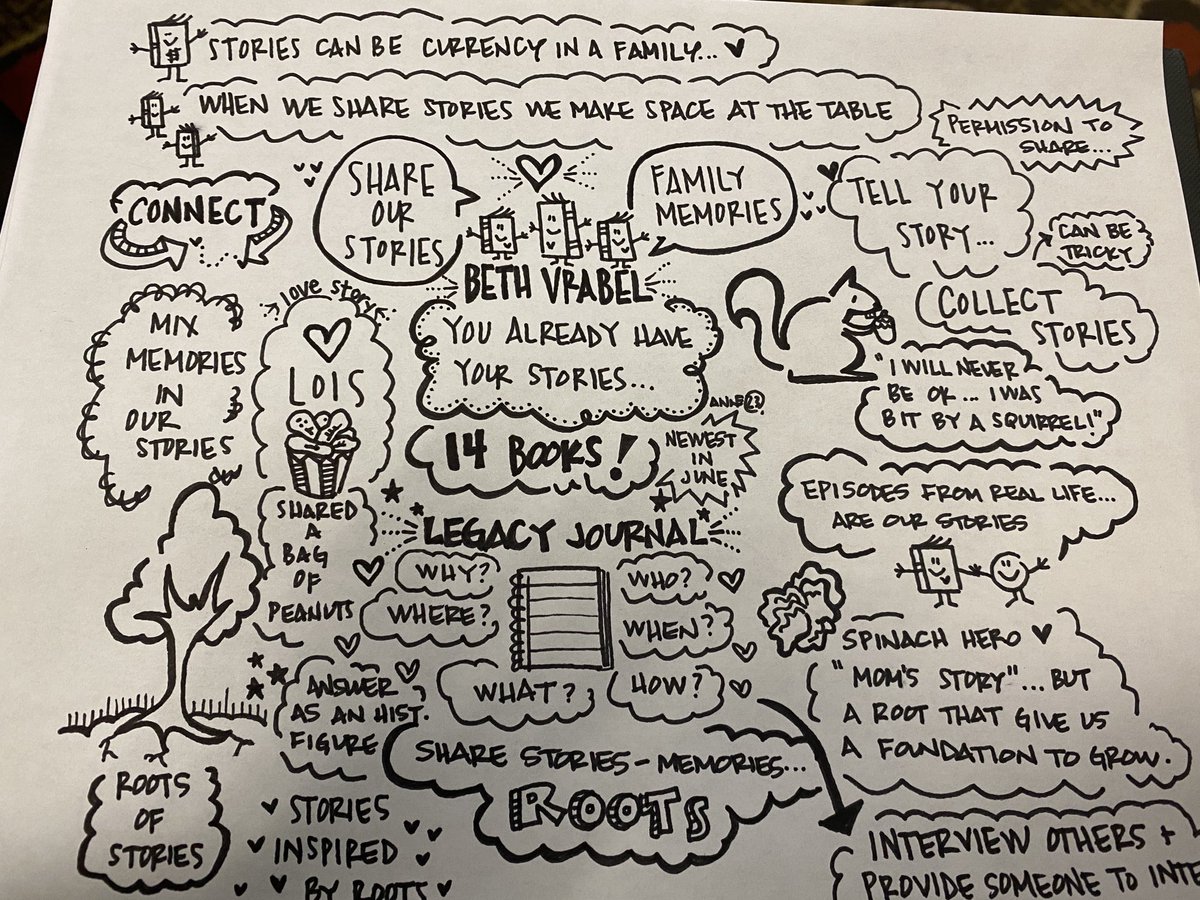 STORIES CAN BE CURRENCY IN A FAMILY...
WHEN WE SHARE STORIES WE MAKE SPACE AT THE TABLE
PERMISSION TO
SHARE...
CONNECT
SHARE
OUR
STORIES
FAMILY
MEMORIES
TELL YOUR
STORY...
CAN BE
TRICKY
BETH VRABEL
COLLECT
STORIES
MIX
MEMORIES
IN
OUR
STORIES
love story
LOIS
SHARED
A
BAG
OF
PEANUTS
YOU ALREADY HAVE
YOUR STORIES...
ANNE 23
"I WILL NEVER
BE OK... I WAS
BIT BY A SQUIRREL!"
14 BOOKS!
NEWEST
IN
JUNE
EPISODES FROM REAL LIFE...
ARE OUR STORIES
LEGACY JOURNAL
WHY?
WHERE?
WHAT?
WHO?
WHEN?
HOW?
SPINACH HERO
"MOM'S STORY"... BUT
A ROOT THAT GIVE US
A FOUNDATION TO GROW.
ANSWER
AS AN HIST.
FIGURE
SHARE STORIES - MEMORIES...
ROOTS
ROOTS
OF
STORIES
STORIES
INSPIRED
BY ROOTS
INTERVIEW OTHERS +
PROVIDE SOMEONE TO